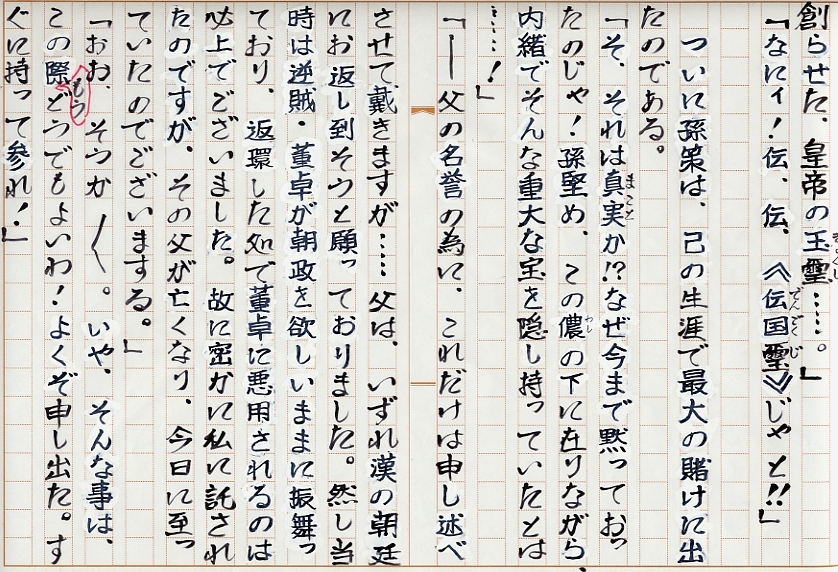 創らせた、皇帝の玉璽……。」
「なにィ！伝、伝、《伝国璽》じゃと!!」
ついに孫策は、己の生涯で最大の賭けに出
たのである。
「そ、それは真実か!?なぜ今まで黙っておっ
たのじゃ！孫堅め、この儂の下に在りながら、
内緒でそんな重大な宝を隠し持っていたとは
……！」
「――父の名誉の為に、これだけは申し述べ
させて戴きますが……父は、いずれ漢の朝廷
にお返し到そうと願っておりました。然し当
時は逆賊・董卓が朝政を欲しいままに振舞っ
ており、返環した処で董卓に悪用されるのは
必上でございました。故に密かに私に託され
たのですが、その父が亡くなり、今日に至っ
ていたのでございまする。」
「おお、そうか〳〵。いや、そんな事は、
この際もうどうでもよいわ！よくぞ申し出た。す
ぐに持って参れ！」